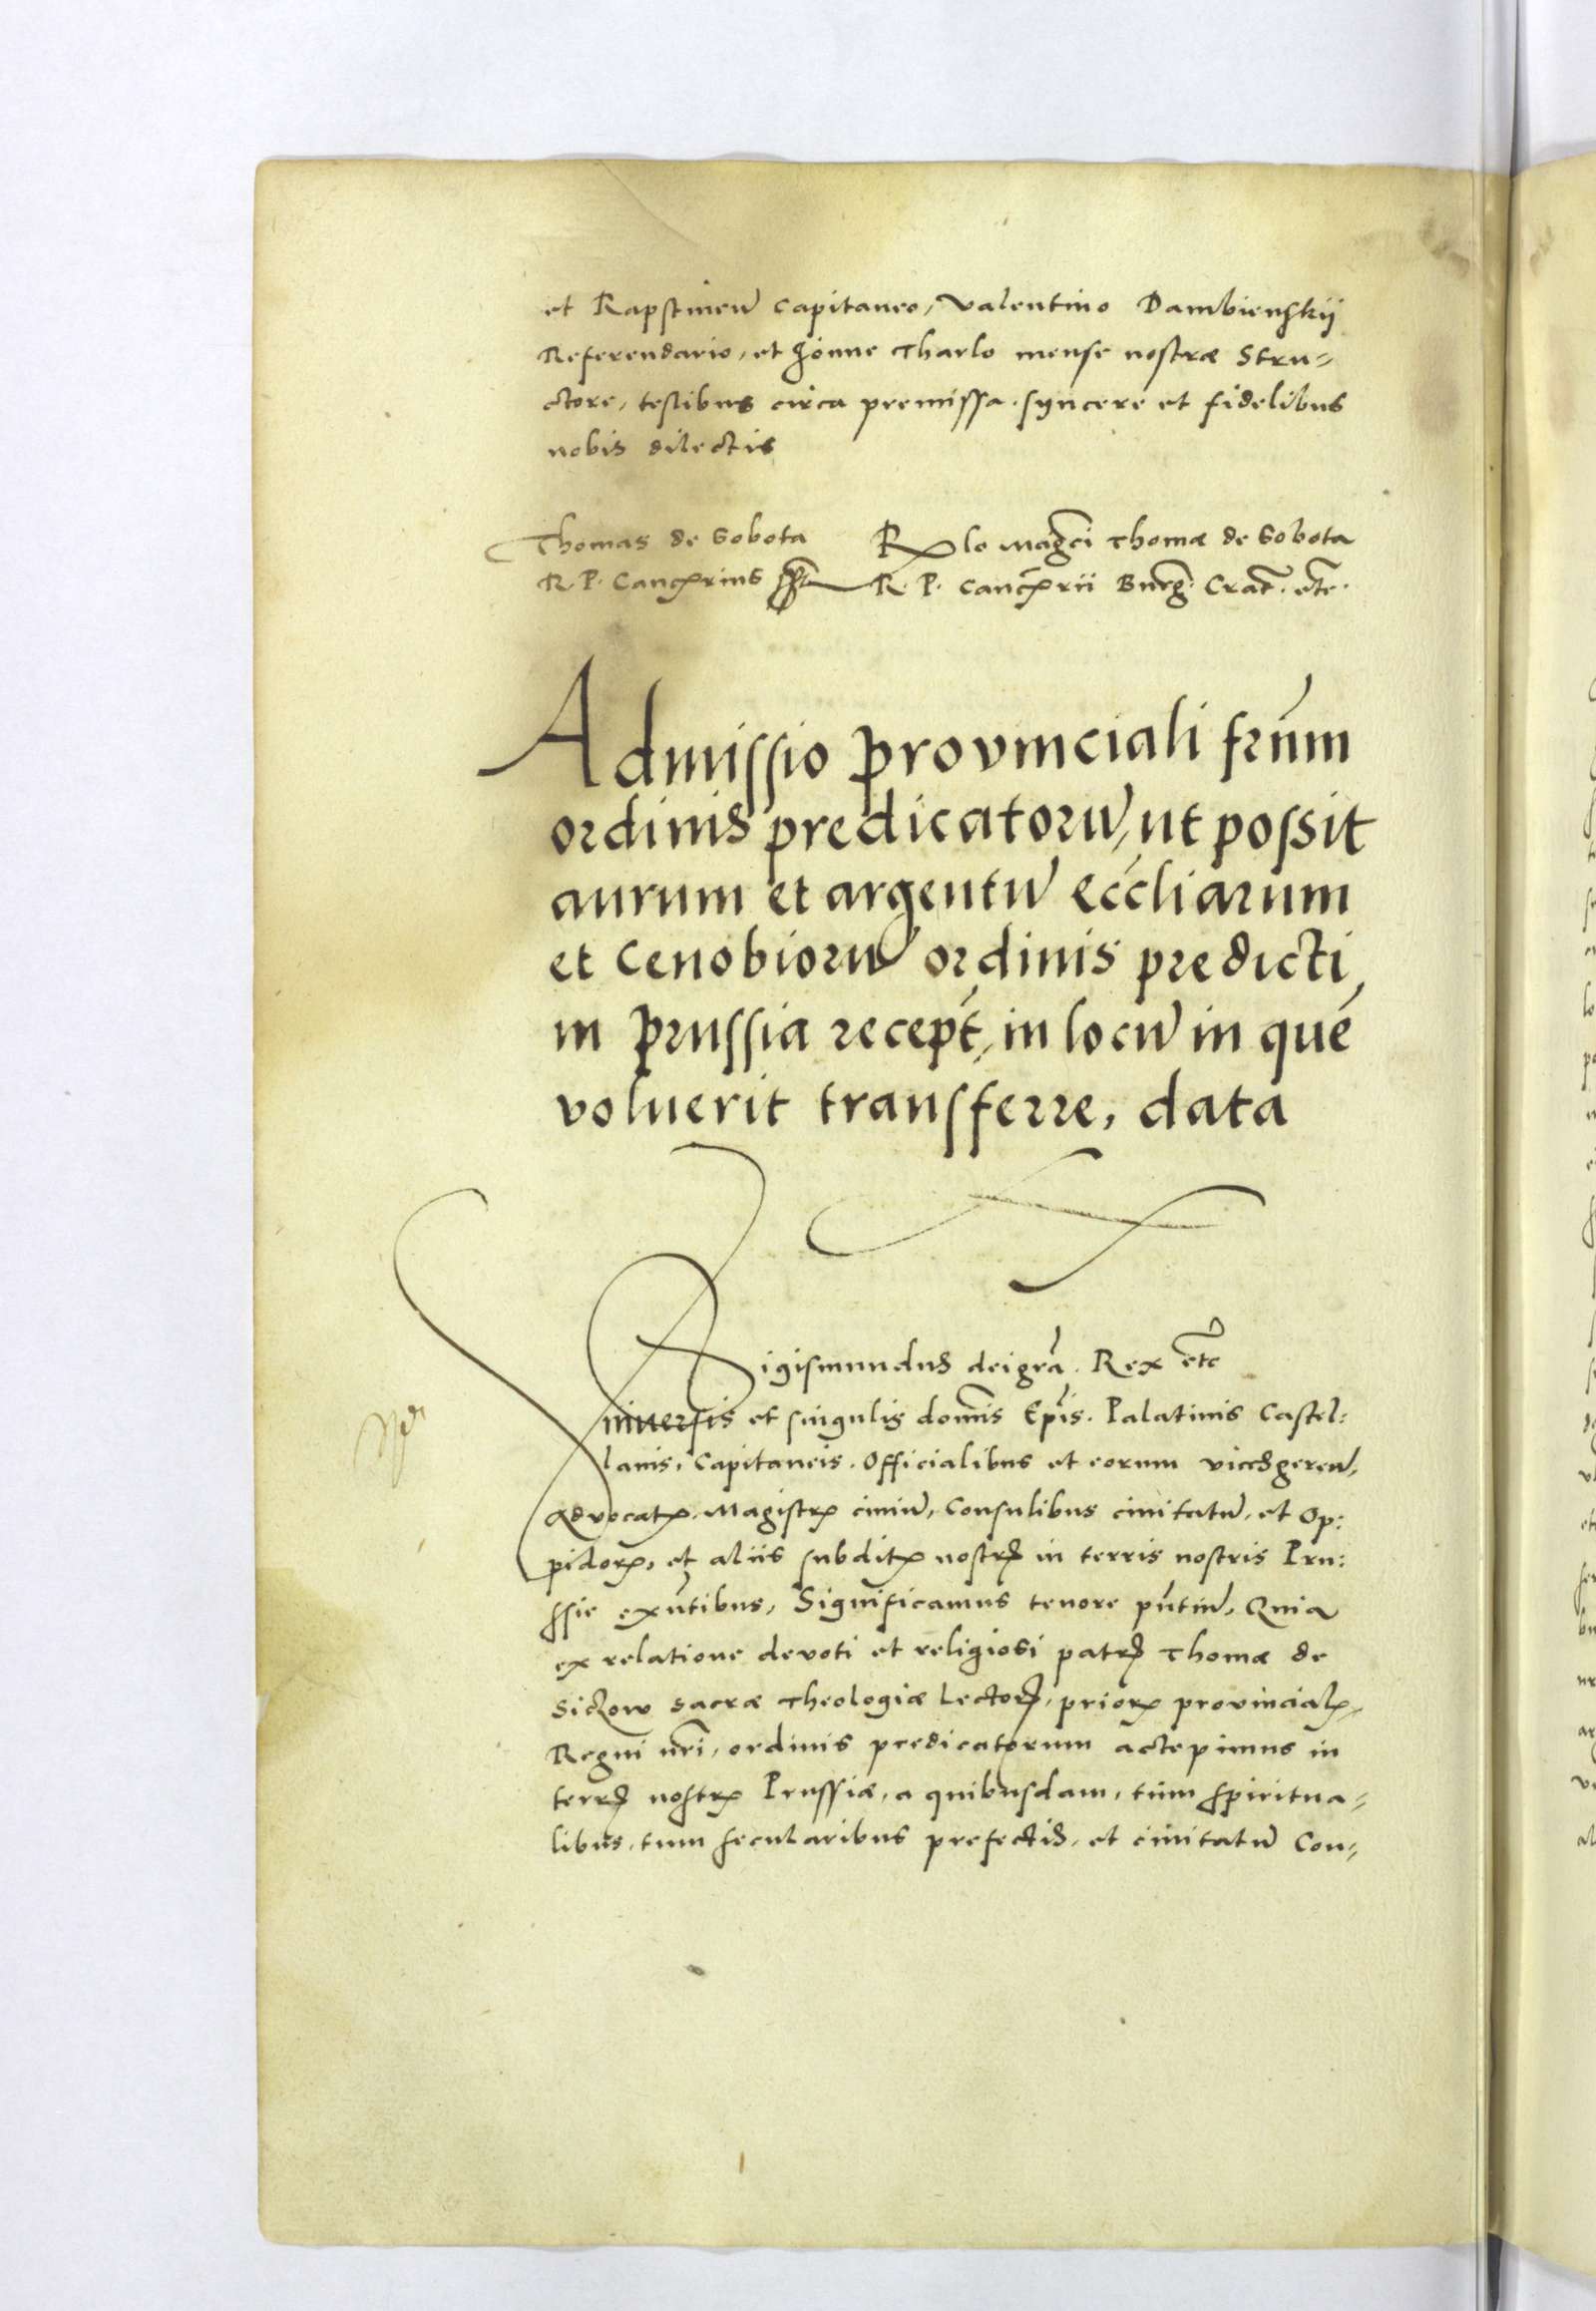 et Rapstinen̄ capitaneo, valentino Dambienskij
Referendario, et Joanne Tharlo mense nostræ Stru⸗
ctore, testibus circa premissa. syncere et fidelibus
nobis dilectis
Thomas de Sobota Rlo magci Thomæ de Sobota
R. P. Cancꝝrius sst R. P. cancꝝrii Burg. Crac̄. etc.
Admissio provinciali frūm
ordinis predicatorū, ut possit
aurum et argentū eccliarum
et cenobiorū ordinis predicti
in prussia recept̄, in locū in quē
voluerit transferre, data
Sigismundus dei gr̄a. Rex etc
Vniuersis et singulis domīs Ep̄is. Palatinis Castel:
lanis, Capitaneis. Officialibus et eorum vicesgeren̄,
Advocatꝭ. Magistrꝭ ciuiū, Consulibus ciuitatū, et Op:
pidorꝝ, et aliis subditꝭ nostrꝭ in terris nostris Pru:
ssie exn̄tibus, Significamus tenore pn̄tiū, Quia
ex relatione devoti et religiosi patrꝭ Thomæ de
Sickow sacræ Theologiæ Lectorꝭ, priorꝭ provincialꝭ,
Regni nr̄i, ordinis predicatorum accepimus in
terrꝭ nostrꝭ Prussiæ, a quibusdam, tum spiritua⸗
libus, tum secularibus prefectis, et ciuitatū Con⸗